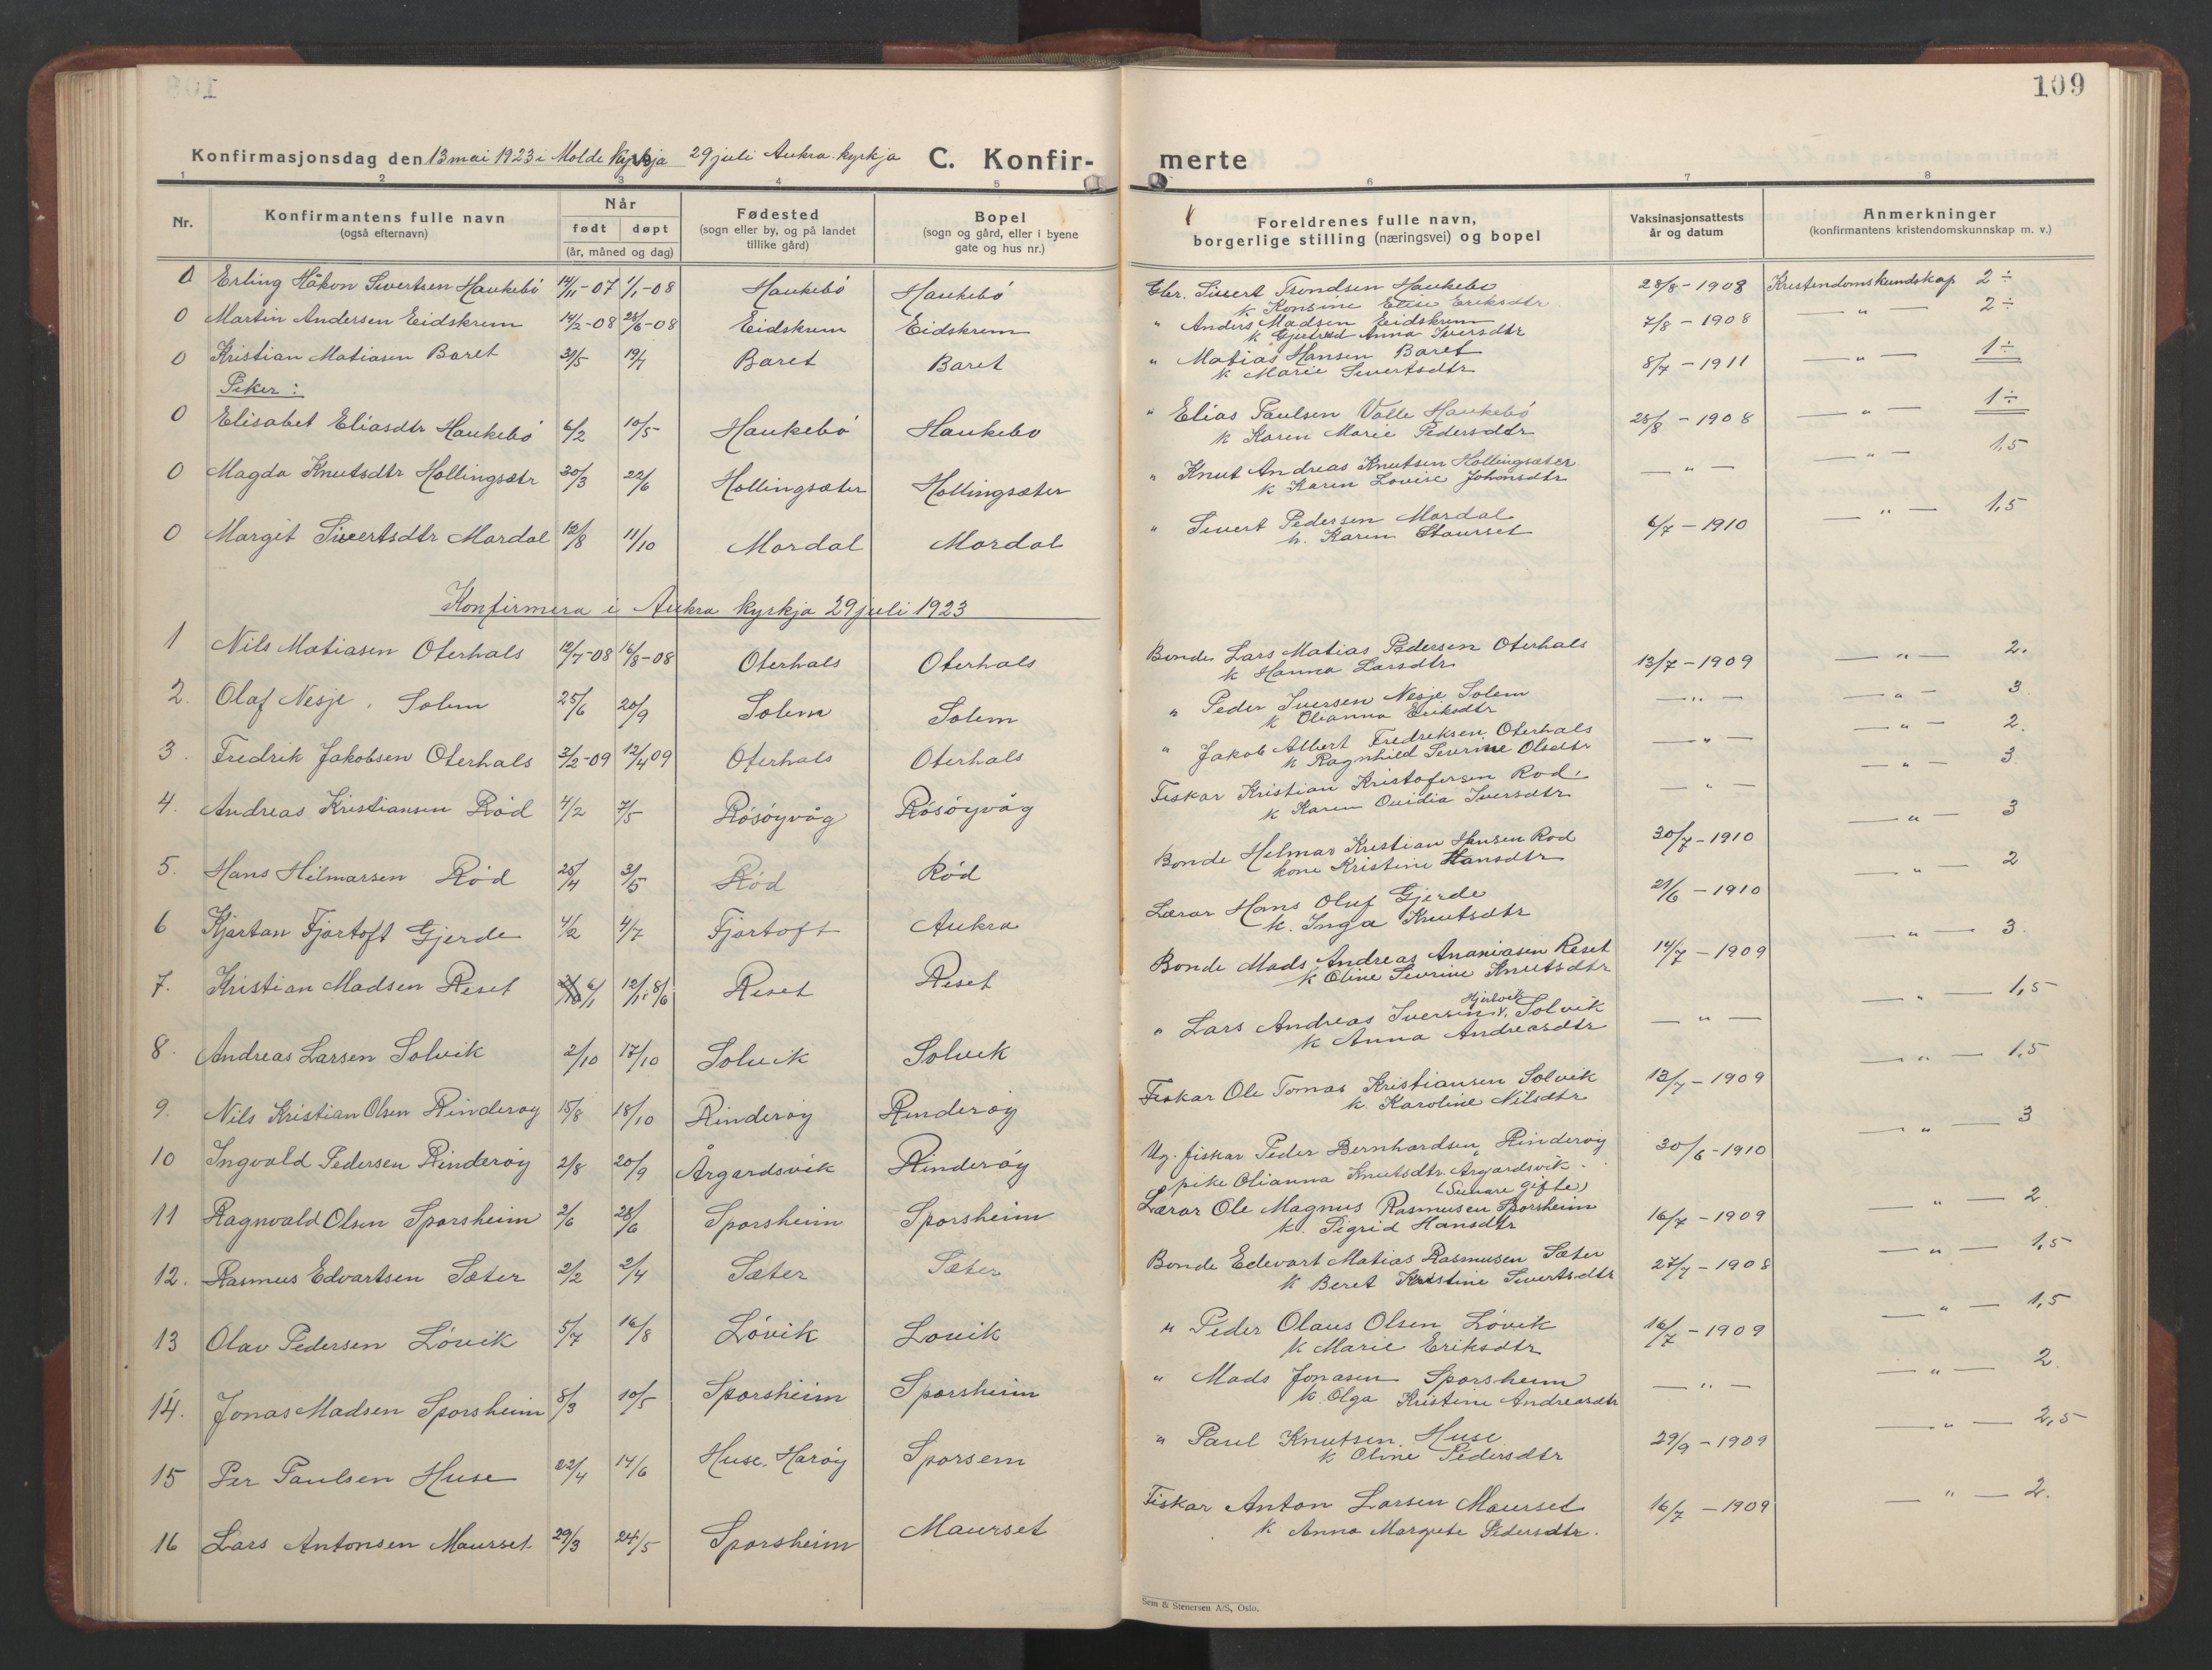 109
Konfirmasjonsdag den 13 mai 1923 i Molde kyrkja 29 juli Aukra kyrkja C. Konfir-merte
1 2 3 4 5 6 7 8
Nr. Konfirmantens fulle navn (også efternavn) Når født døpt (år, måned og dag) Fødested (sogn eller by, og på landet tillike gård) Bopel (sogn og gård, eller i byene gate og hus nr.) Foreldrenes fulle navn, borgerlige stilling (næringsvei) og bopel Vaksinasjonsattests år og datum Anmerkninger (konfirmantens kristendomskunnskap m. v.)
0 Erling Håkon Sivertsen Haukebö 14/11-07 1/1-08 Haukebö Haukebö Gbr. Sivert Trondsen Haukebö 28/8-1908 Kristendomskundskap 2 ÷
k Konsine Elise Eriksdtr
0 Martin Andersen Eidskrem 14/2-08 28/6-08 Eidskrem Eidskrem " Anders Madsen Eidskrem 7/8-1908 — " — 2 ÷
k Gjertrud Anna Iversdtr
0 Kristian Matiasen Baret 30/5 19/7 Baret Baret " Matias Hansen Baret 8/7-1911 — " — 1 ÷
k Marie Sivertsdtr
Piker:
0 Elisabet Eliasdtr Haukebö 6/2 10/5 Haukebö Haukebo " Elias Paulsen Valle Haukebö 28/8-1908 — " — 1 ÷
k Karen Marie Pedersdtr
0 Magda Knutsdtr Hollingsætr 30/3 22/6 Hollingsæter Hollingsæter " Knut Andreas Knutsen Hollingsæter — " — — " — 1,5
k Karen Lovise Johansdtr
0 Margit Sivertsdtr Mordal 12/8 11/10 Mordal Mordal " Sivert Pedersen Mordal 6/7-1910 — " — 1,5
k. Karen Staurset
Konfirmera i Aukra kyrkja 29 juli 1923
1 Nils Matiasen Oterhals 12/7-08 16/8-08 Oterhals Oterhals Bonde Lars Matias Pedersen Oterhals 13/7-1909 — " — 2.
k Hanna Larsdtr
2. Olaf Nesje, Solem 25/6 20/9 Solem Solem " Peder Iversen Nesje Solem — " — — " — 3.
k Olianna Eriksdtr
3. Fredrik Jakobsen Oterhals 3/2-09 12/4 09 Oterhals Oterhals " Jakob Albert Fredriksen Oterhals — " — — " — 2.
k Ragnhild Severine Olsdtr
4. Andreas Kristiansen Röd 4/2 7/5 Rösöyvåg Rösöyvåg Fiskar Kristian Kristofersen Rod — " — — " — 3.
k Karen Ovidia Iversdtr
5. Hans Hilmarsen Röd 25/4 31/5 Röd Röd Bonde Helmar Kristian Hansen Rod 30/7-1910 — " — 3
kone Kristine Hansdtr
6 Kjartan Fjørtoft Gjerde 4/2 4/7 Fjørtoft Aukra Lærar Hans Oluf Gjerde 21/6-1910 — " — 2
k. Inga Knutsdtr
7. Kristian Madsen Reset 6/1 Reset Reset Bonde Mads Andreas Ananiasen Reset 14/7-1909 — " — 3.
k Oline Sevrine Knutsdtr
8. Andreas Larsen Solvik 2/10 17/10 Solvik Solvik " Lars Andreas Iversen Hjertvik v. Solvik — " — — " — 1,5
k Anna Andreasdtr
9. Nils Kristian Olsen Rinderøy 15/8 18/10 Rinderøy Rinderöy Fiskar Ole Tomas Kristiansen Solvik 13/7-1909 — " — 1,5
k. Karoline Nilsdtr
10 Ingvald Pedersen Rinderöy 2/8 20/9 Årgardsvik Rinderöy Ug. fiskar Peder Bernhardsen Rinderöy 30/6-1910 — " — 3
pike Olianna Knutsdtr. Årgardsvik.
(Seinare gifte)
11 Ragnvald Olsen Sporsheim 2/6 28/6 Sporsheim Sporsheim Lærar Ole Magnus Rasmusen Sporsheim 16/7-1909 — " — 2
k. Sigrid Hansdtr
12. Rasmus Edvartsen Sæter 2/2 2/4 Sæter Sæter Bonde Edevart Matias Rasmusen Sæter 27/7-1908 — " — 1,5
k Beret Kristine Sivertsdtr
13 Olav Pedersen Lövik 5/7 16/8 Lövik Lovik " Peder Olaus Olsen Lövik 16/7-1909 — " — 1,5
k Marie Eriksdtr
14. Jonas Madsen Sporsheim 8/3 10/5 Sporsheim Sporsheim " Mads Jonasen Sporsheim — " — — " — 2.
k. Olga Kristine Andreasdtr
15 Per Paulsen Huse 22/4 14/6 Huse, Harøy Sporsem " Paul Knutsen Huse 29/9-1909 — " — 2,5
k Oline Pedersdtr
16 Lars Antonsen Maurset 29/3 24/5 Sporsheim Maurset Fiskar Anton Larsen Maurset 16/7-1909 — " — 2.
k Anna Margrete Pedersdtr.
Sem & Stenersen A/S, Oslo.